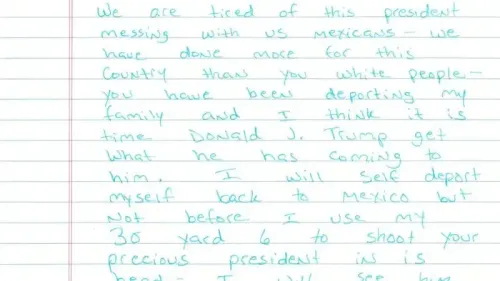 We are tired of this president
messing with us mexicans - we
have done more for this
country than you white people -
you have been deporting my
family and I think it is
time Donald J. Trump get
what he has coming to
him. I will self deport
myself back to Mexico but
not before I use my
30 yard 6 to shoot your
precious president in is
head - I will see him